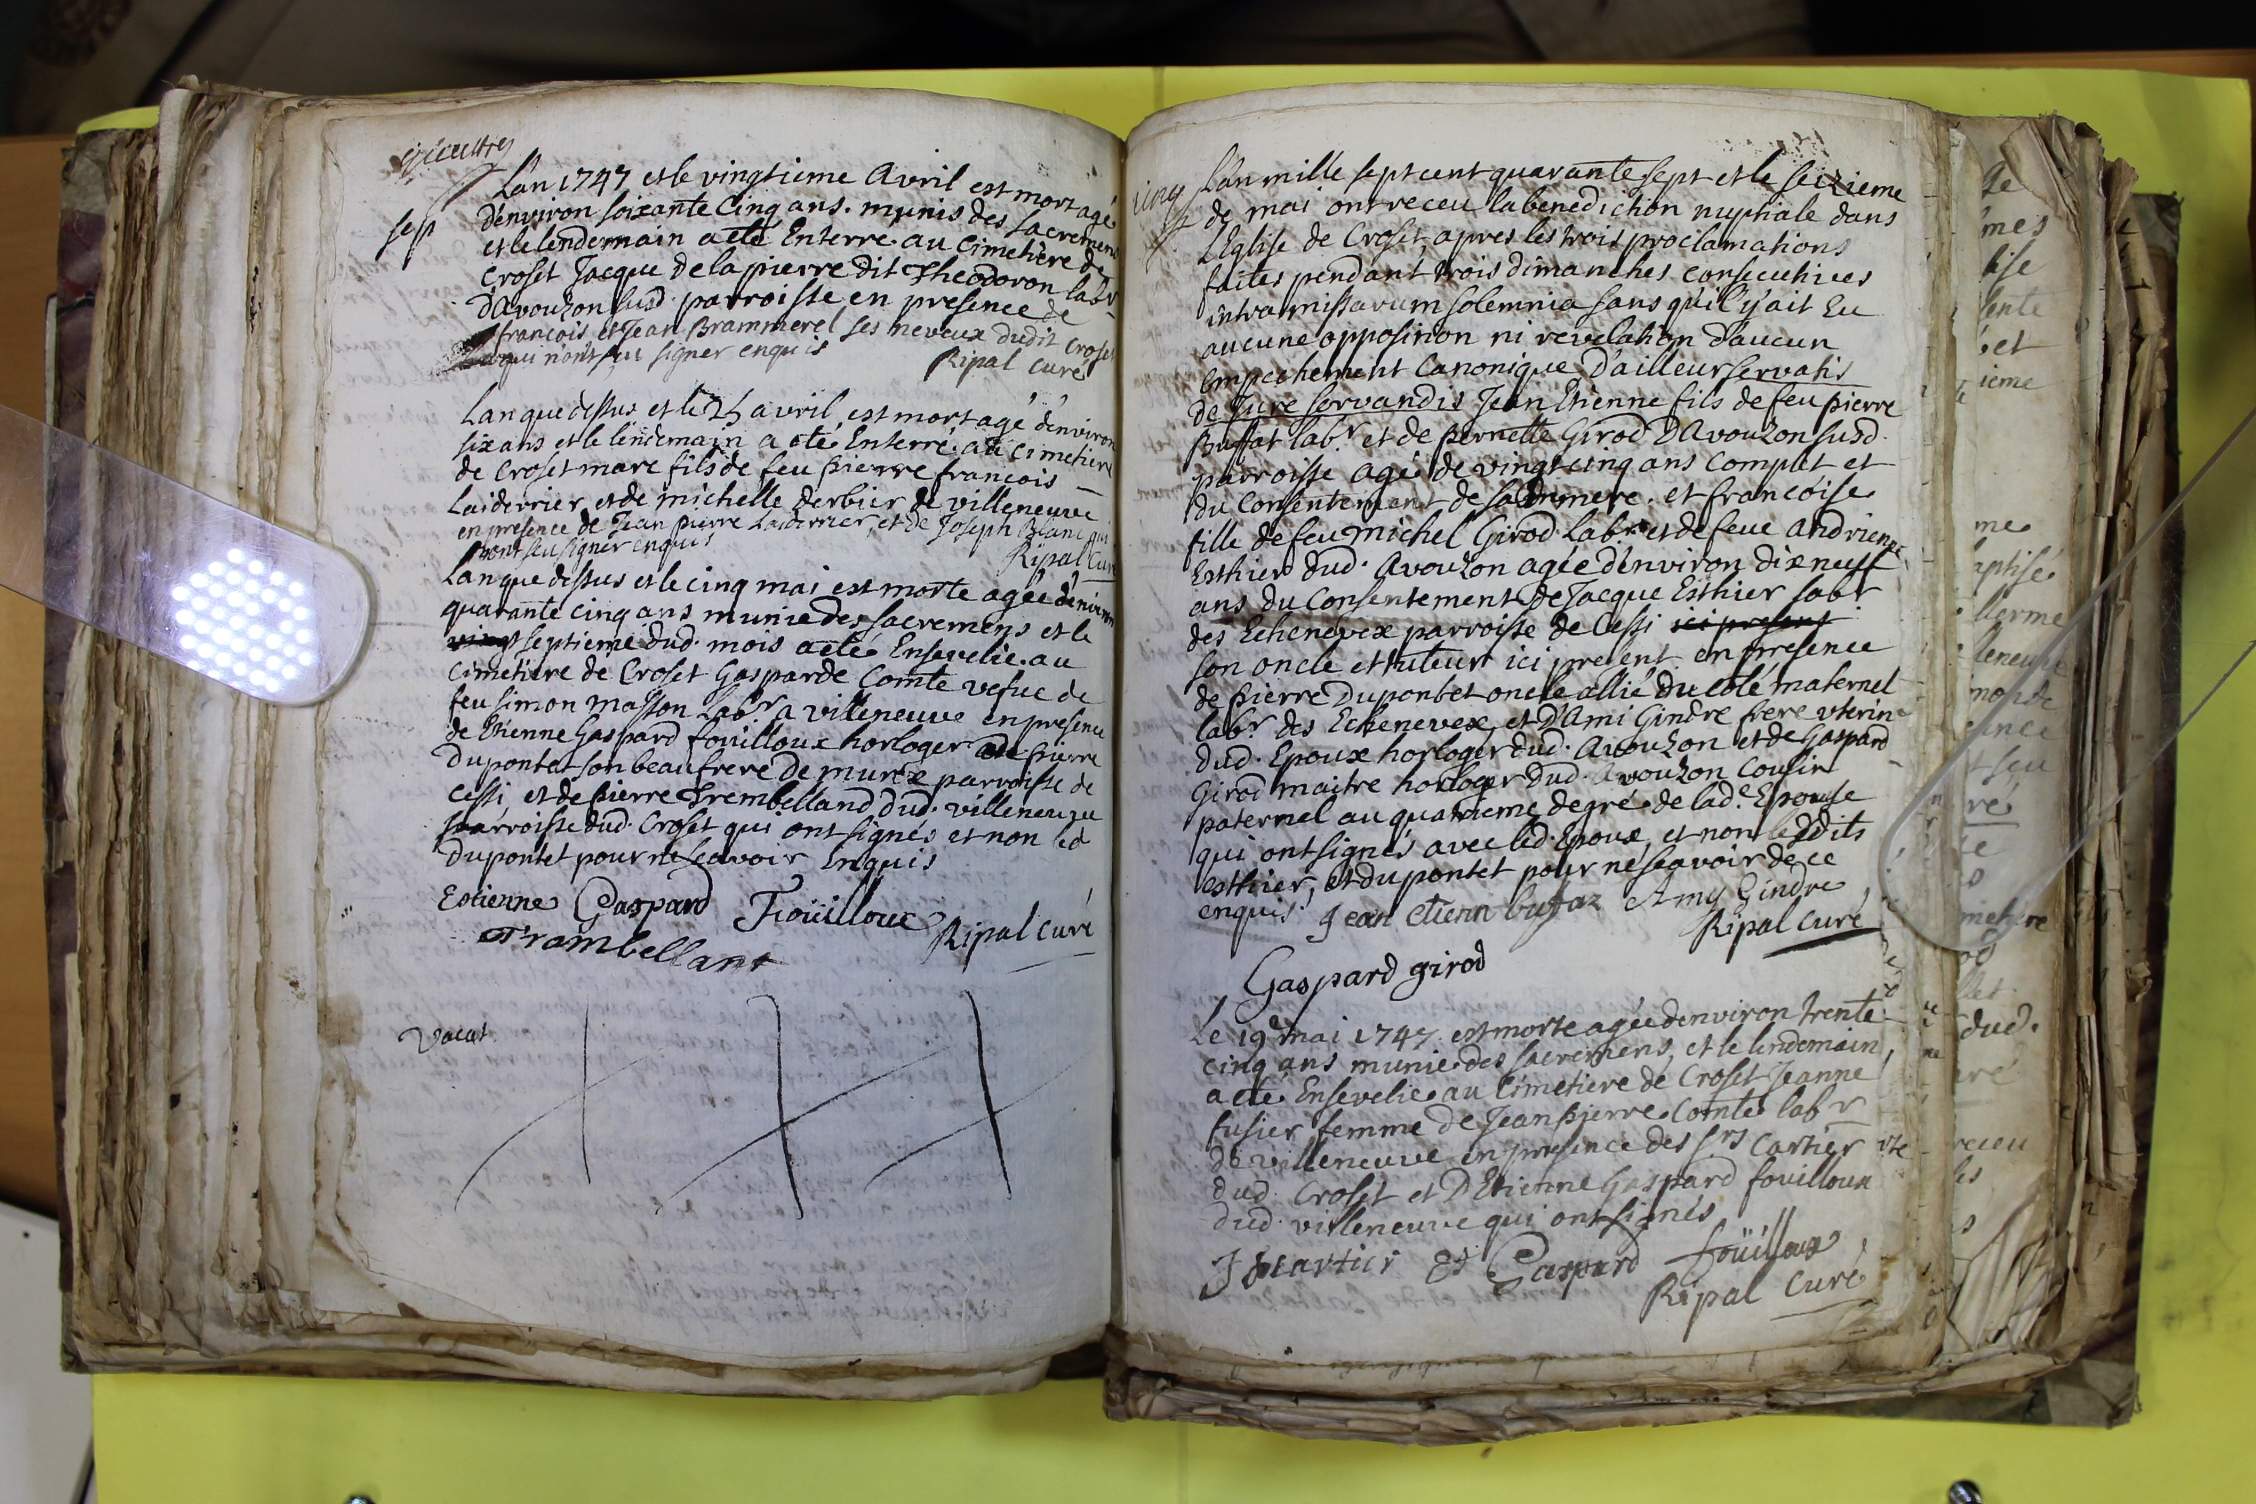 sep
L'an 1747 et le vingtieme Avril est mort agé
d'environ soixante Cinq ans. munis des sacremens
et le lendemain a eté Enterré au Cimetiere de
Croset Jacque de la pierre dit Theodoron labr
d'Avouzon susd. parroisse en presence de
francois et Jean Brammerel ses neveux dudit Croset
qui n'ont seu signer enquis
Ripal curé
L'an que dessus et le 25 avril est mort agé d'environ
six ans et le lendemain a eté Enterré au cimetiere
de Croset marc fils de feu pierre francois
Laiderrier et de michelle derbier de villeneuve
en presence de Jean pierre Laiderrier, et de Joseph Blanc qui
n'ont seu signer enquis
Ripal Curé
L'an que dessus et le cinq mai est morte agée d'environ
quarante cinq ans munie des sacremens et le
septieme dud. mois a eté Ensevelie au
cimetiere de Croset Gasparde Comte vefue de
feu simon masson Labr a villeneuve en presence
de Etienne Gaspard fouilloux horloger de pierre
dupontet son beaufrere de murex parroisse de
Cessi, et de pierre Trembelland dud. villeneuve
parroisse dud. Croset qui ont signés et non led
dupontet pour ne scavoir Enquis
Estienne Gaspard Foüilloux
Ripal curé
Trambellant
Vacat
cinq
L'an mille sept cent quarante sept et le seizieme
de mai ont receu la benediction nuptiale dans
L'Eglise de Croset, apres les trois proclamations
faites pendant trois dimanches consecutives
intra missarum solemnia sans qu'il y ait Eu
aucune opposition ni revelation d'aucun
Empechement Canonique D'ailleur servatis
de Jure servandis Jean Etienne fils de feu pierre
Buffat labr et de pernette Girod D'Avouzon susd.
parroisse agé de vingt cinq ans Complet et
du Consentement de sad. mere. et francoise
fille de feu michel Girod Labr et de feue andrienne
Esthier dud. Avouzon agée d'environ dix neuff
ans du Consentement de Jacque Esthier labr
des Echenevex parroisse de Cessi ici present
son oncle et tuteur ici present en presence
de pierre Dupontet oncle allié du coté maternel
labr des Echenevex, et D'Ami Gindre frere uterin
dud. Epoux horloger dud. Avouzon et de Gaspard
Girod maitre horloger dud. Avouzon Cousin
paternel au quatrieme degré de lad.e Epouse
qui ont signés avec led. Epoux, et non lesdits
esthier, et dupontet pour ne scavoir de ce
enquis
Jean Etienn bufaz Amy Gindre
Ripal curé
Gaspard girod
Le 19e mai 1747 est morte agée d'environ trente
cinq ans munie des sacremens, et le lendemain
a eté Ensevelie au Cimetiere de Croset Jeanne
fusier femme de Jean pierre Comte labr
de villeneuve en presence des srs Cartier
dud. Croset et D'Etienne Gaspard fouilloux
dud. villeneuve qui ont signés
Et Gaspard foüilloux
Ripal Curé